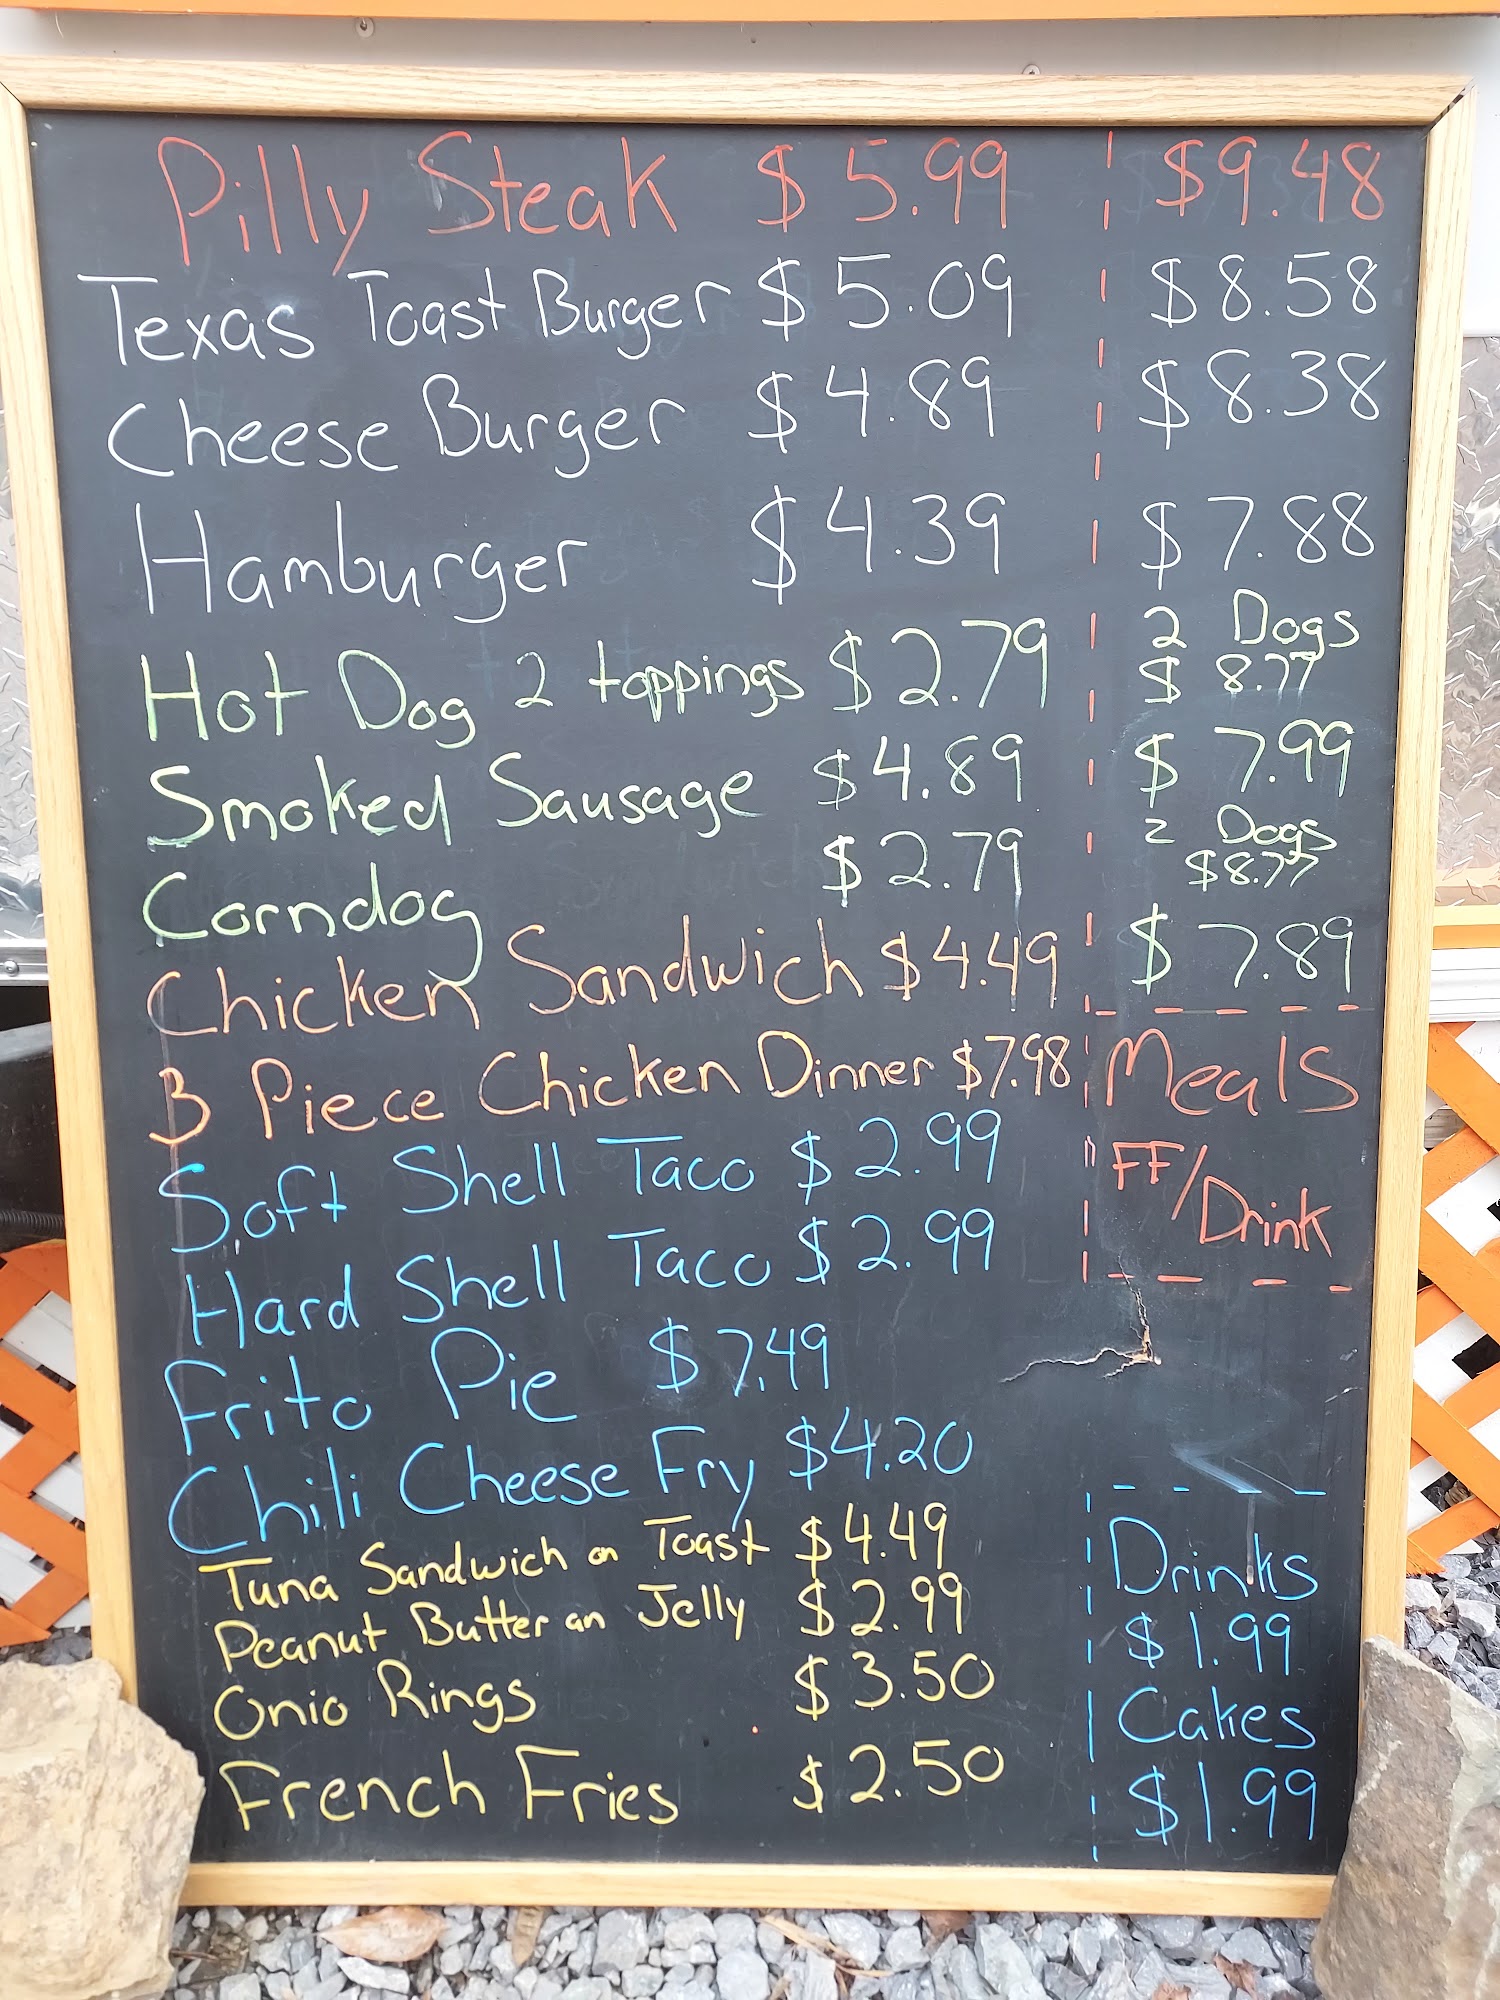 Pilly Steak $5.99 $9.48
Texas Toast Burger $5.09 $8.58
Cheese Burger $4.89 $8.38
Hamburger $4.39 $7.88
Hot Dog 2 toppings $2.79 2 Dogs $8.77
Smoked Sausage $4.89 $7.99
Corndog $2.79 2 Dogs $8.77
Chicken Sandwich $4.49 $7.89
3 Piece Chicken Dinner $7.98
Soft Shell Taco $2.99
Hard Shell Taco $2.99
Frito Pie $7.49
Chili Cheese Fry $4.20
Tuna Sandwich on Toast $4.49
Peanut Butter an Jelly $2.99
Onio Rings $3.50
French Fries $2.50
Meals
FF/Drink
Drinks
$1.99
Cakes
$1.99